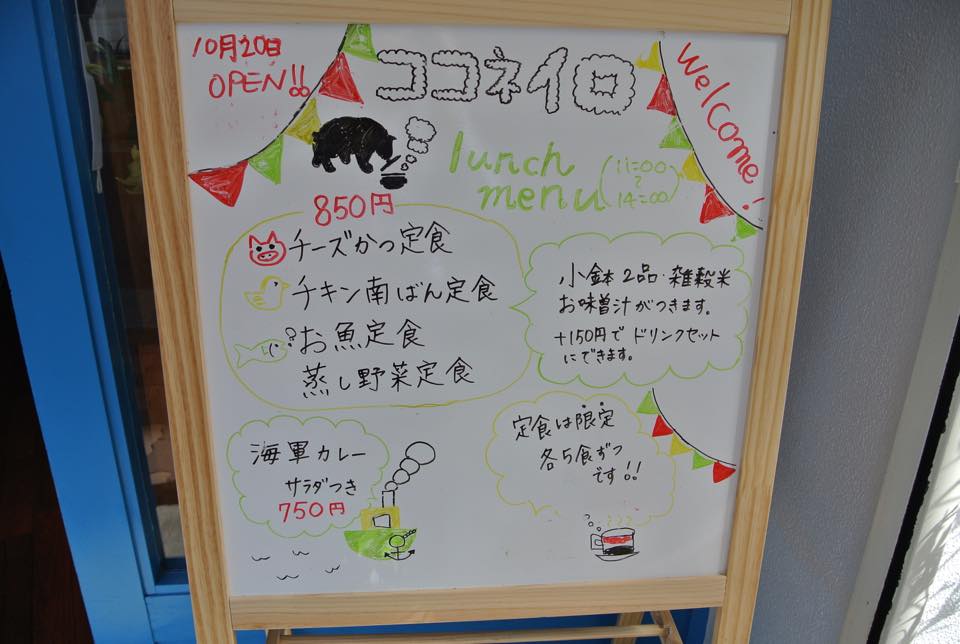 10月20日
OPEN!!
ココネイロ
Welcome!
lunch
menu
11:00
〜
14:00
850円
チーズかつ定食
チキン南ばん定食
お魚定食
蒸し野菜定食
小鉢2品・雑穀米
お味噌汁がつきます。
+150円でドリンクセット
にできます。
海軍カレー
サラダつき
750円
定食は限定
各5食ずつ
です!!